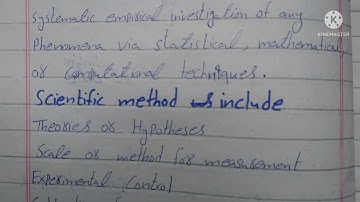 systematic empirical investigation of any
Phenomena via statistical, mathematical,
or computational techniques.
Scientific method include
Theories or Hypotheses
Scale or method for measurement
Experimental Control
KINEMASTER